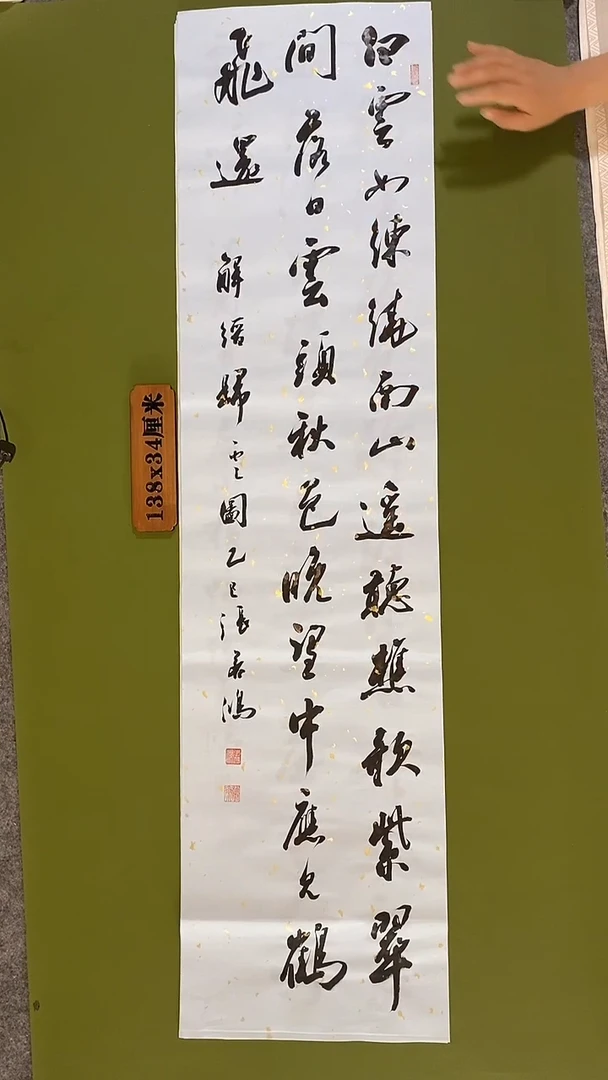 白雲如練繞南山遥聽樵歌紫翠
間落日雲頭秋色晚望中應見鶴
飛還
解縉歸雲圖乙巳張鴻
138x34厘米